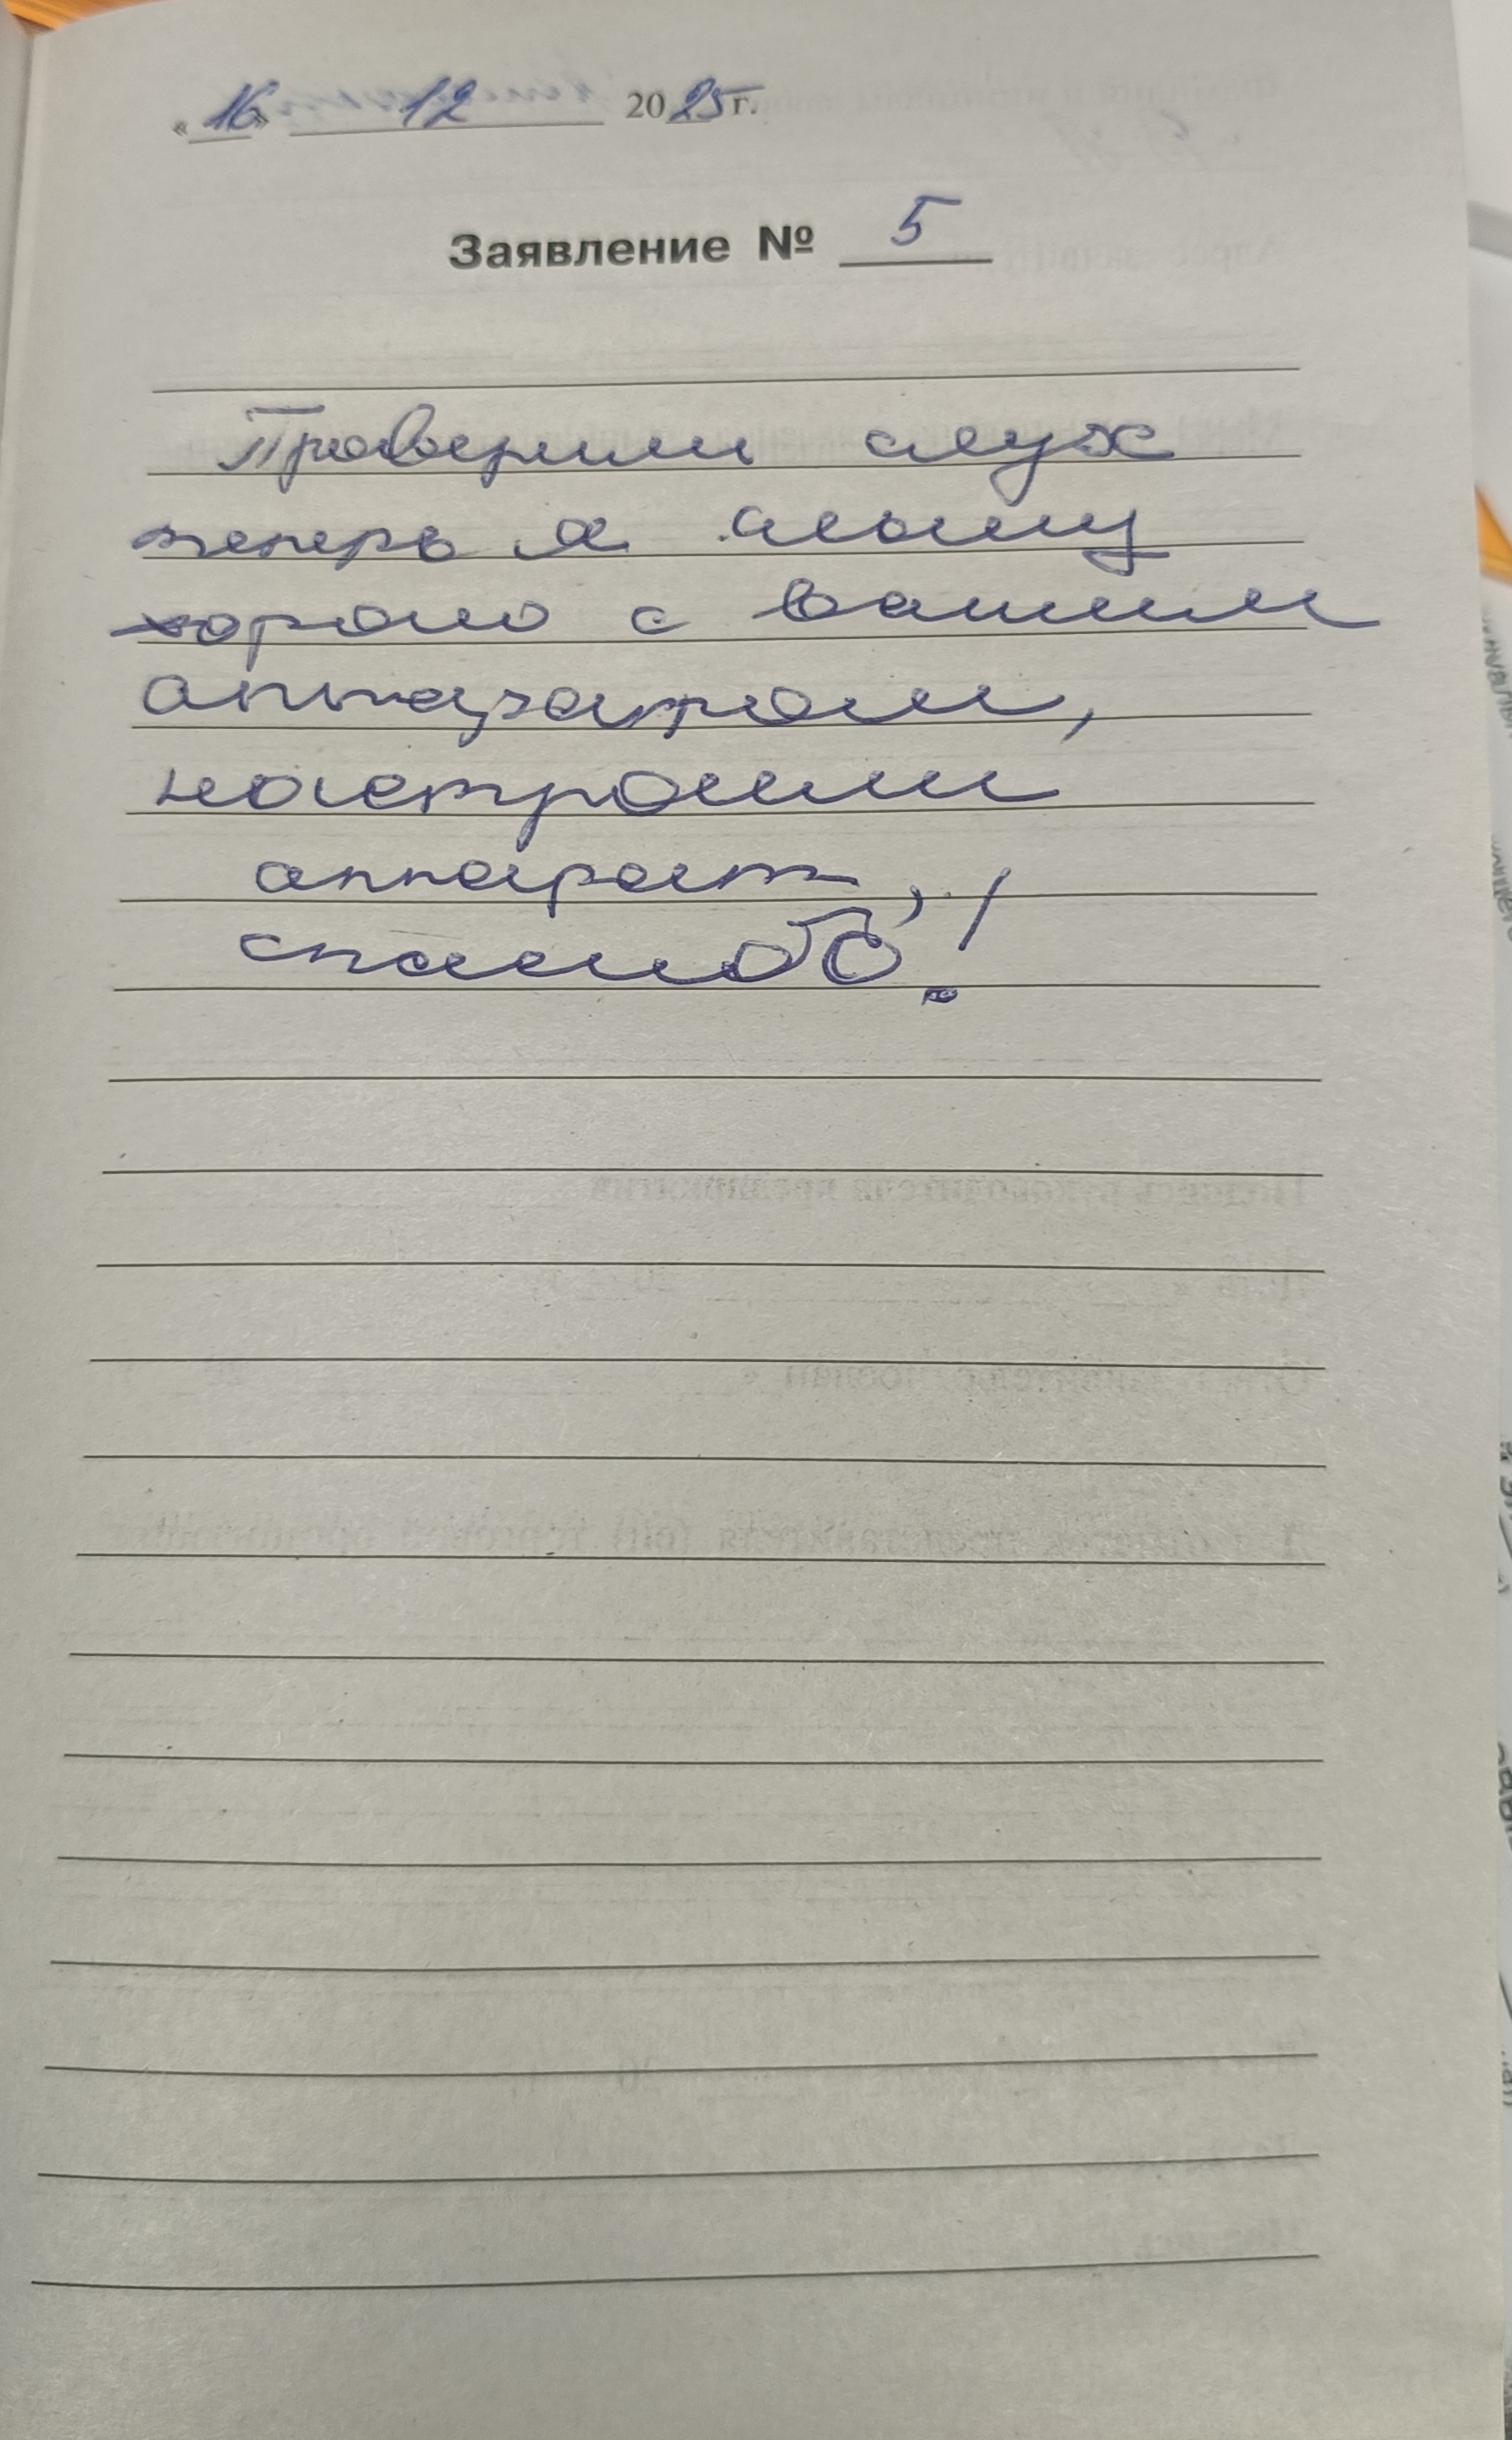 «16» 12 2025 г.
Заявление № 5
Проверили слух
теперь я слышу
хорошо с вашим
аппаратом,
настроили
аппарат,
спасибо!